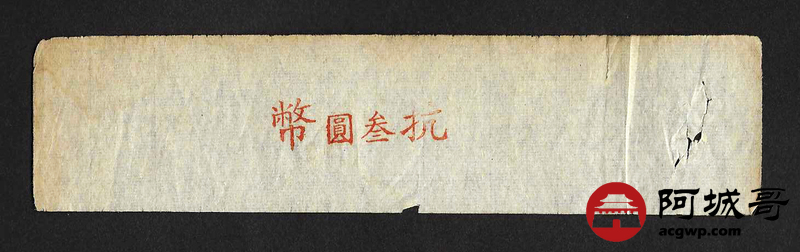 抗叁圓幣
阿城哥
acgwp.com